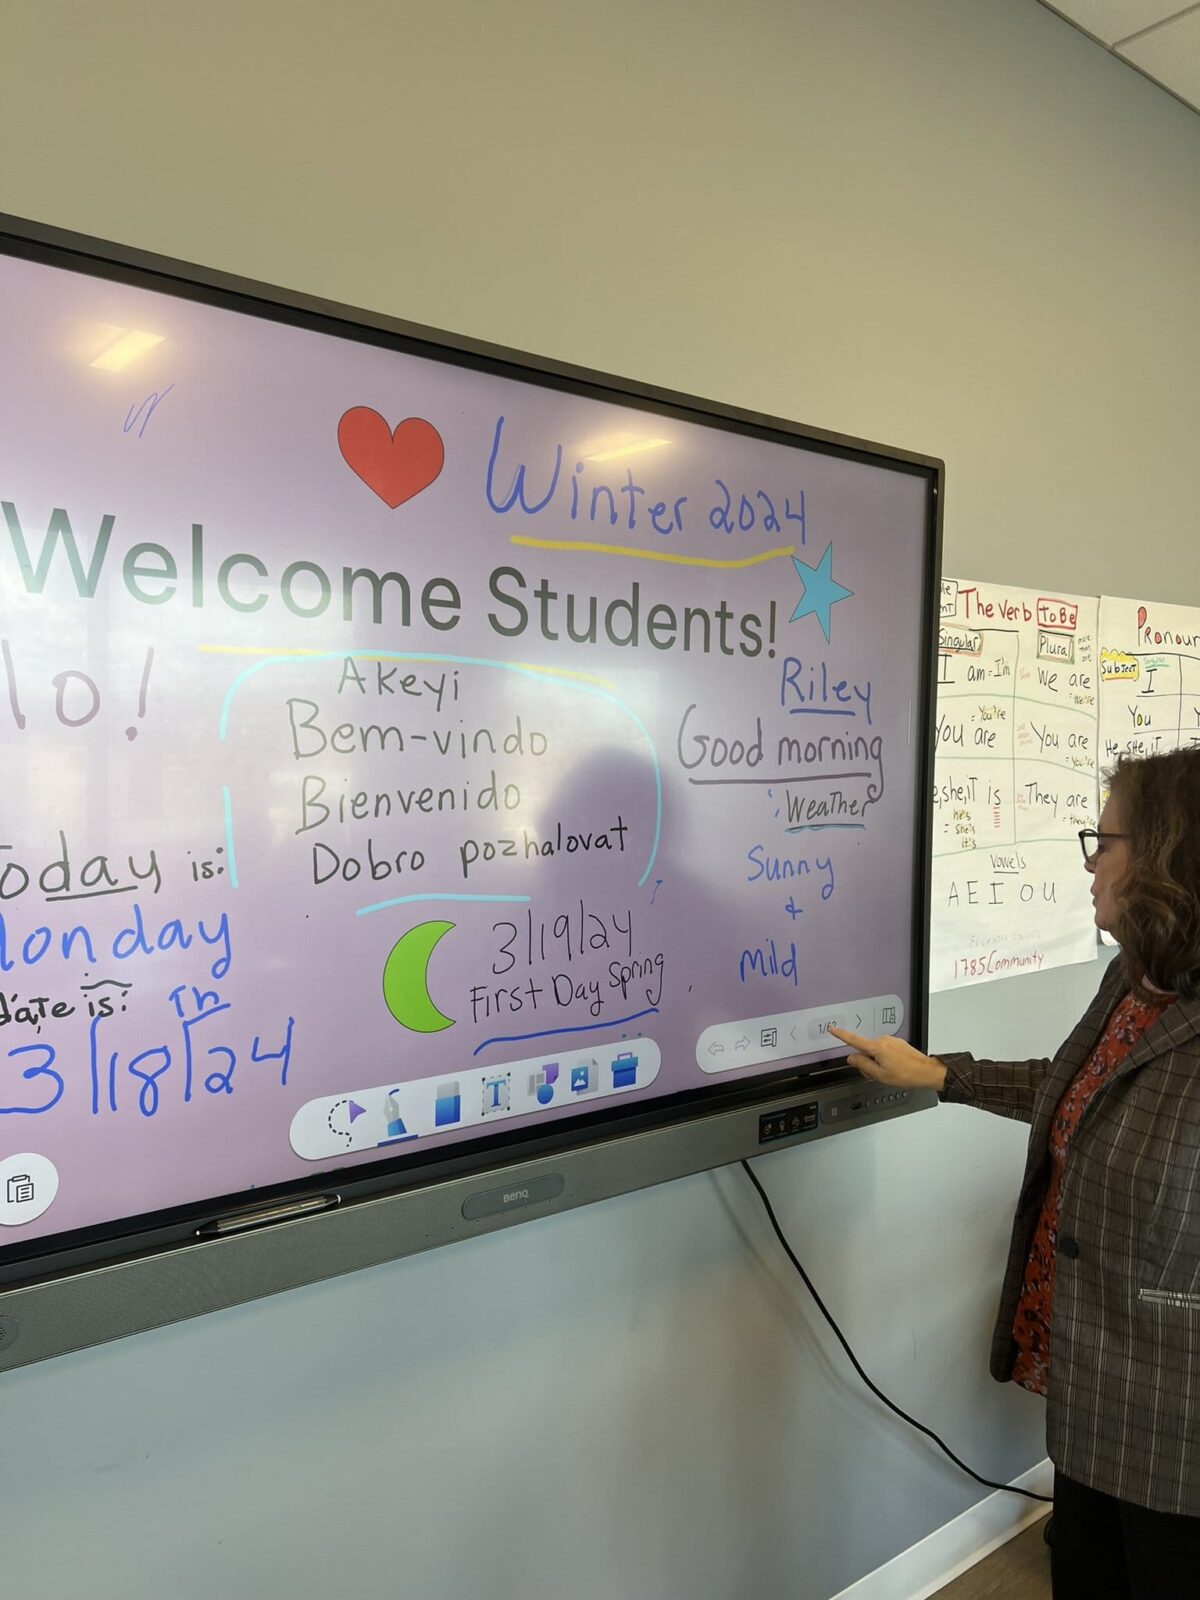 Winter 2024
Welcome Students!
lo!
Akeyi
Bem-vindo
Bienvenido
Dobro pozhalovat
Today is:
Monday
date is:
Th
3/18/24
3/19/24
First Day Spring
Riley
Good morning
: Weather
Sunny
+
Mild
1/62
T
BenQ
The Verb To Be
Singular
Plural
more than one
I am = I'm
We are
= We're
You are
= You're
You are
= You're
he, she, IT is
= he's
she's
it's
They are
= they're
Vowels
A E I O U
1785 Community
Pronoun
Subject
Singular
I
You
He, she, IT